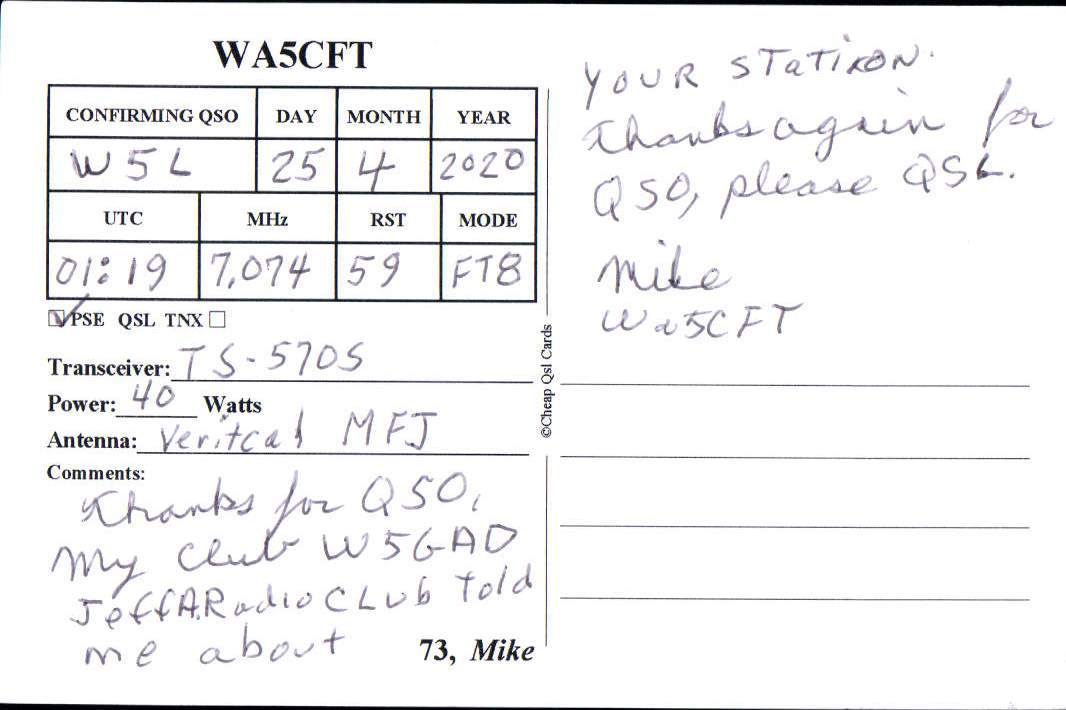 WA5CFT
CONFIRMING QSO DAY MONTH YEAR
W5L 25 4 2020
UTC MHz RST MODE
01:19 7,074 59 FT8
PSE QSL TNX
Transceiver: TS-570S
Power: 40 Watts
Antenna: Veritcal MFJ
Comments:
Thanks for QSO,
My club W5GAD
JeffA.Radio CLub told
me about
73, Mike
©Cheap Qsl Cards
YOUR STATiON.
Thanks again for
QSO, please QSL.
Mike
Wa5CFT